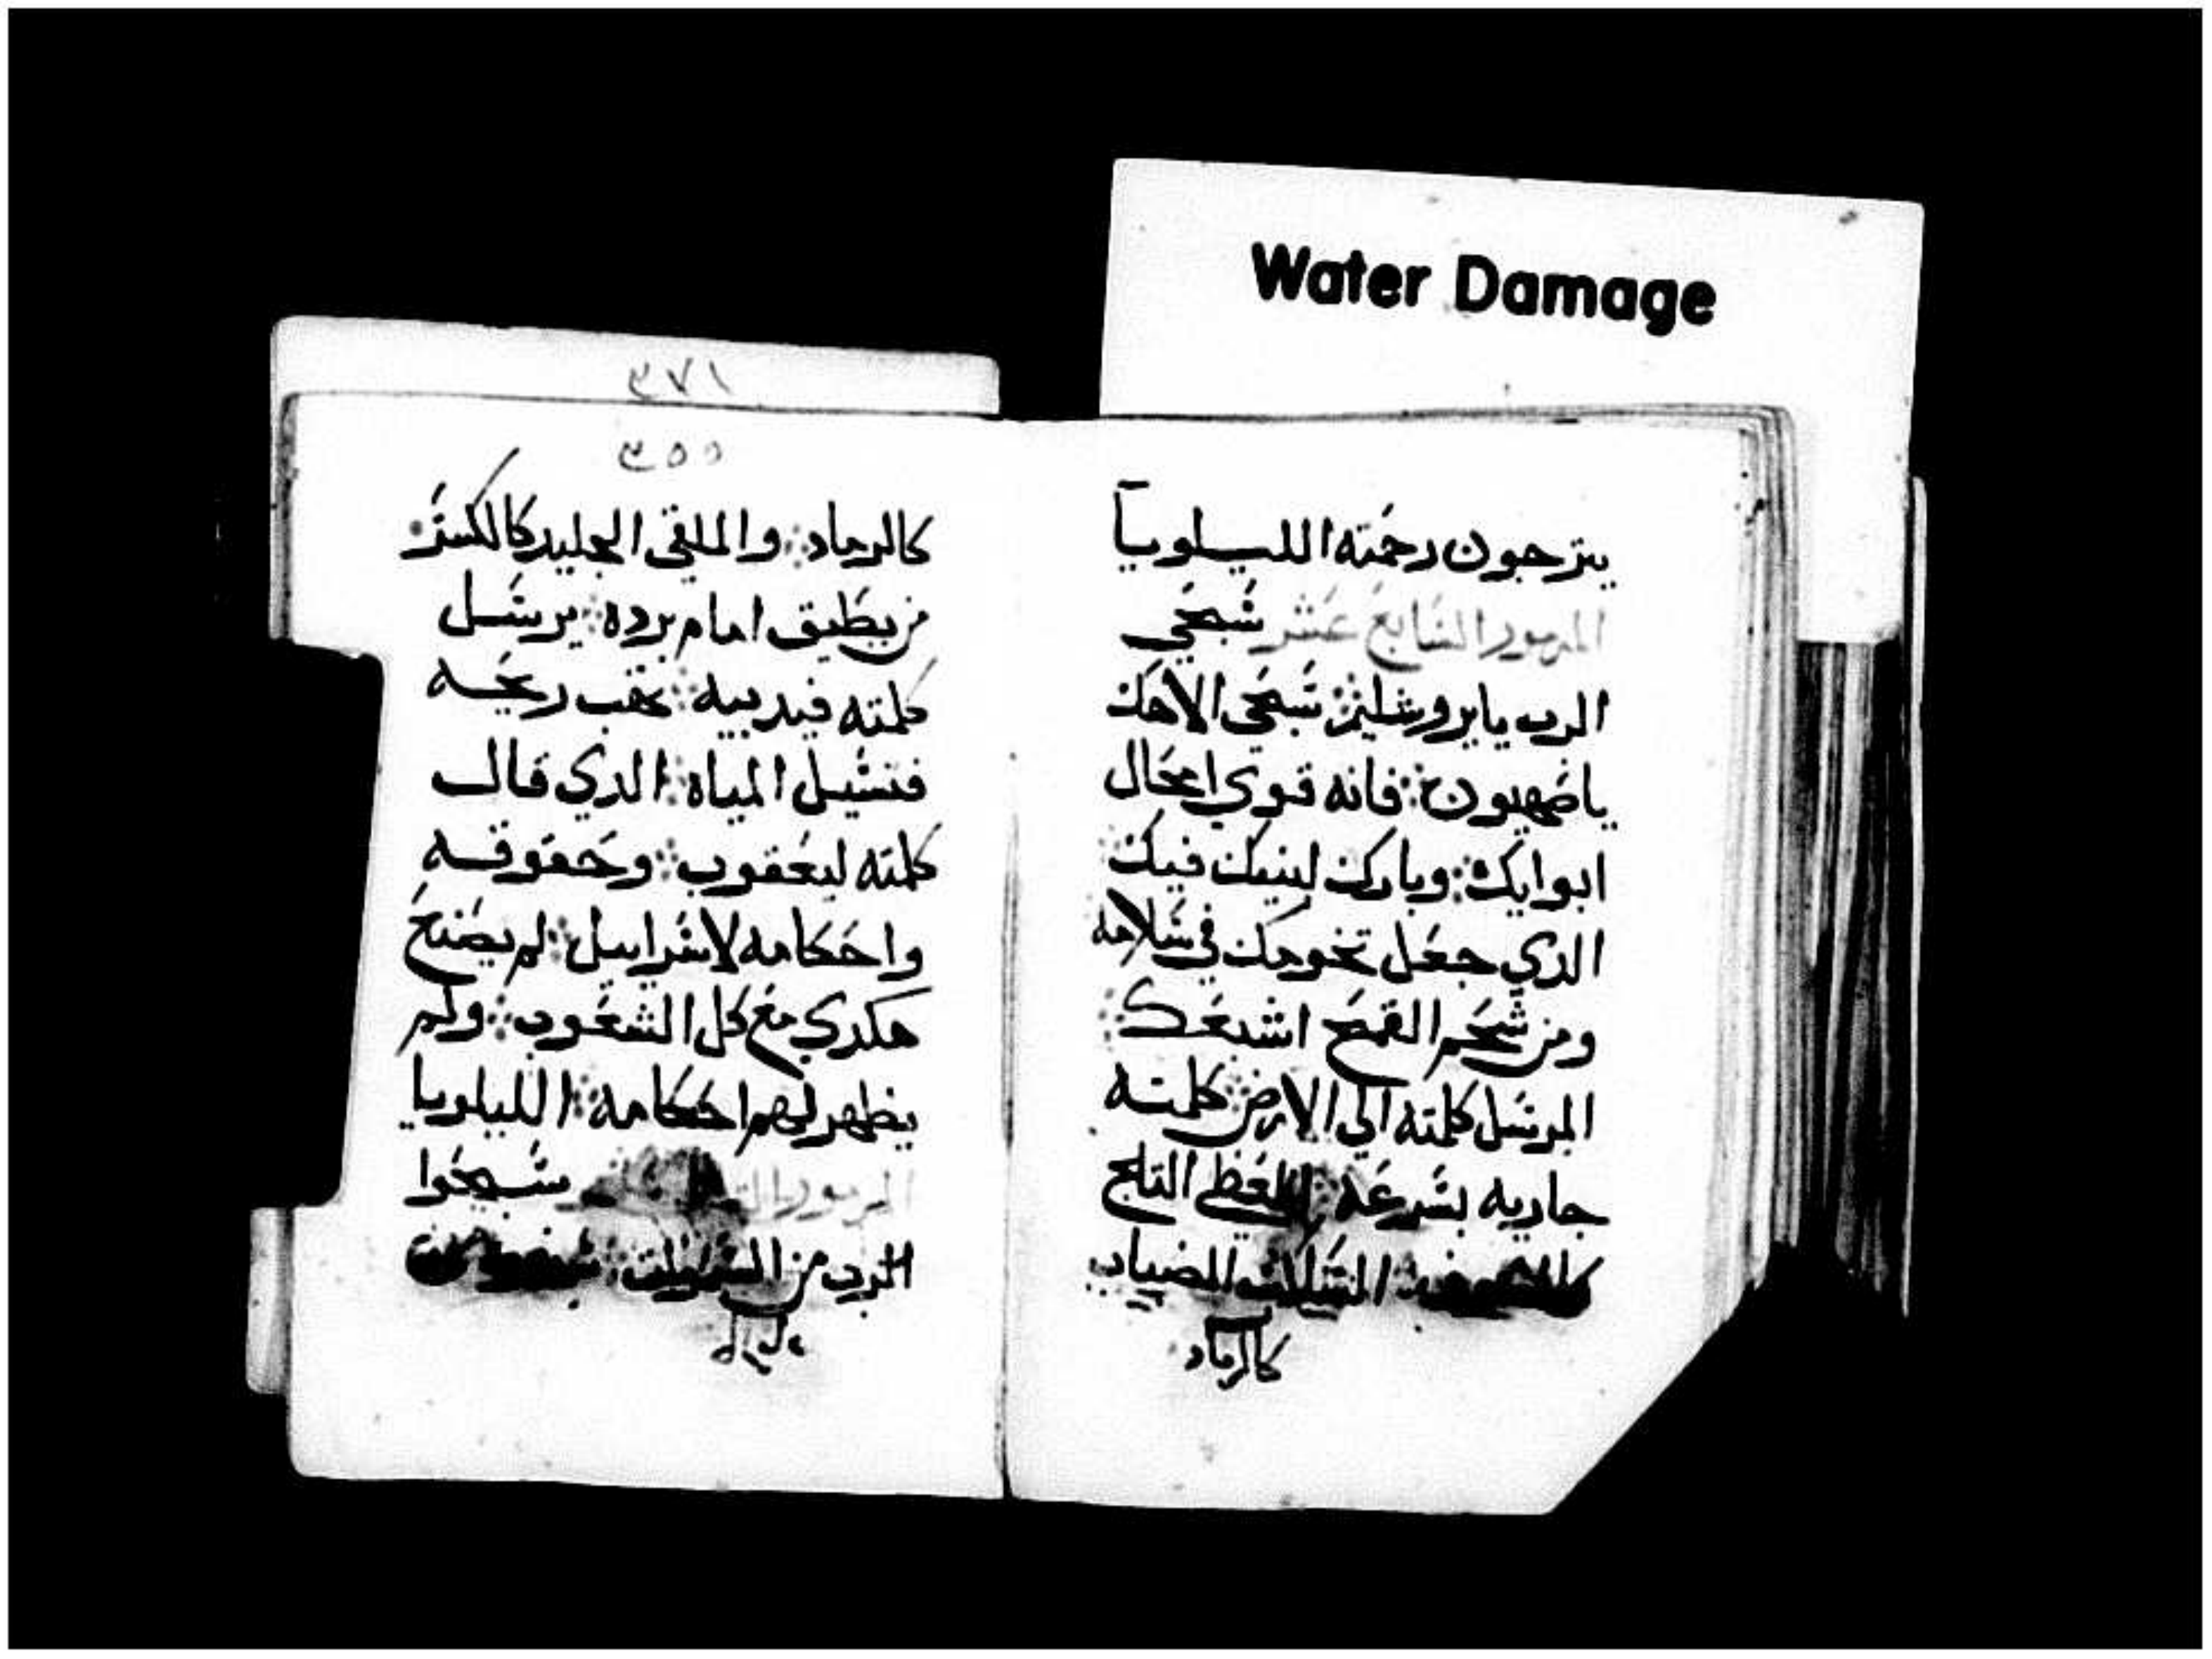 Water Damage
يترجون رحمته الليلويا
المزمور السابع عشر سبحي
الرب يايروشليم سبحي الاهك
ياصهيون فانه قوي امخال
ابوابك وبارك لبنيك فيك
الدي جعل تخومك في سلامه
ومن شحم القمح اشبعك
المرسل كلمته الي الارض كلمته
جاريه بسرعه المعطي التلج
كالصوف السكات الضباب
كالرماد
٣٧١
٣٥٥
كالرماد والملقي الجليد كالكسر
من يطيق امام برده يرسل
كلمته فيديبه تهب ريحه
فتسيل المياه الدي قال
كلمته ليعقوب وحقوقه
واحكامه لاسراييل لم يصنع
هكدي مع كل الشعوب ولم
يظهر لهم احكامه الليلويا
المزمور سبحوا
الرب من السموات